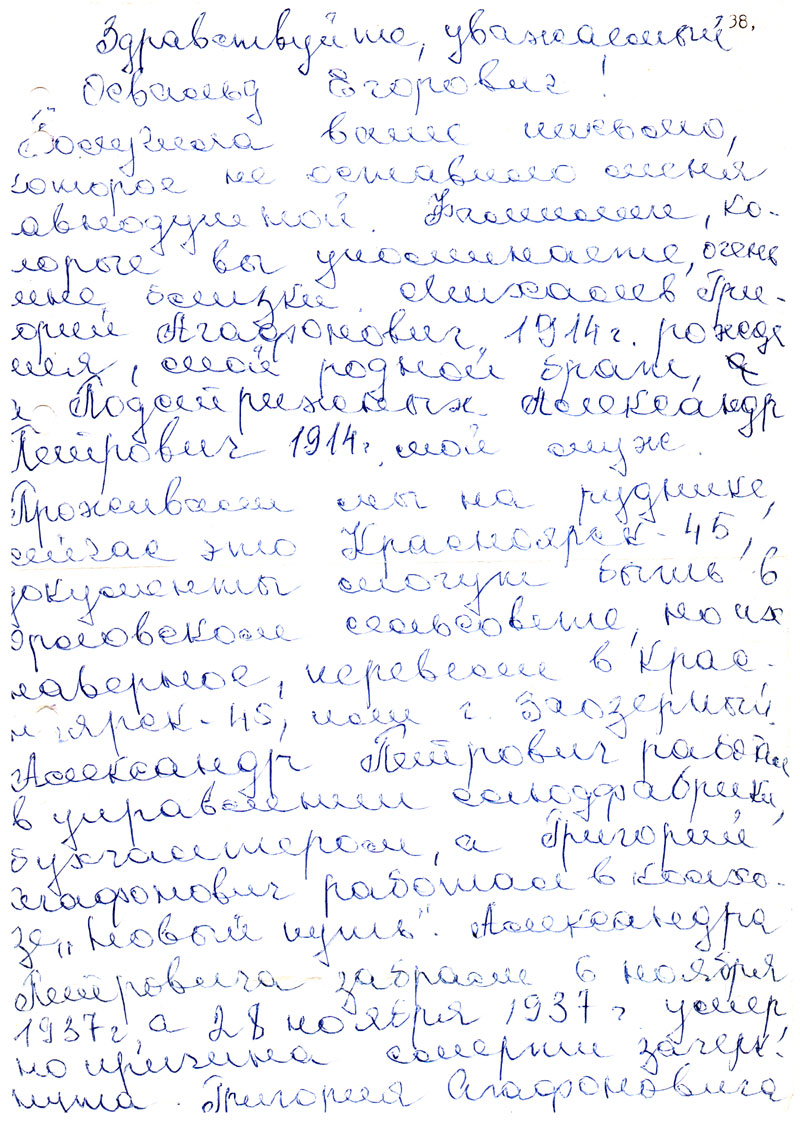 38,
Здравствуйте, уважаемый
Освальд Егорович!
Получила ваше письмо,
которое не оставило меня
авнодушной. Фамилии, ко-
торые вы упоминаете, очень
мне близки. Михалев Гри-
орий Агафонович, 1914 г. рожде
ния, мой родной брат, а
Подстрижных Александр
Петрович 1914 г. мой муж.
Проживали мы на руднике,
сейчас это Красноярск-45,
документы могут быть в
сельсовете, но их
наверное, перевели в Крас-
н ярск-45, или г. Заозерный.
Александр Петрович работал
в управлении слюдфабрики,
бухгалтером, а Григорий
Агафонович работал в колхо-
зе „Новый путь". Александра
Петровича забрали 6 ноября
1937 г, а 28 ноября 1937 г умер
но причина смерти зачерк-
нута. Григория Агафоновича